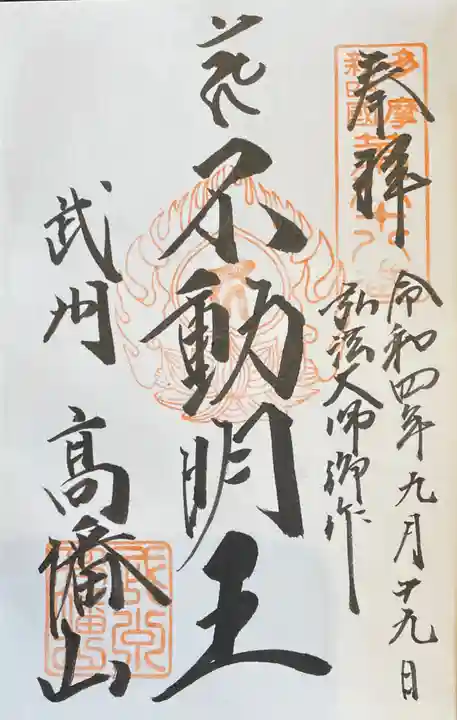 奉拝
令和四年九月十九日
弘法大師御作
不動明王
武州 高幡山